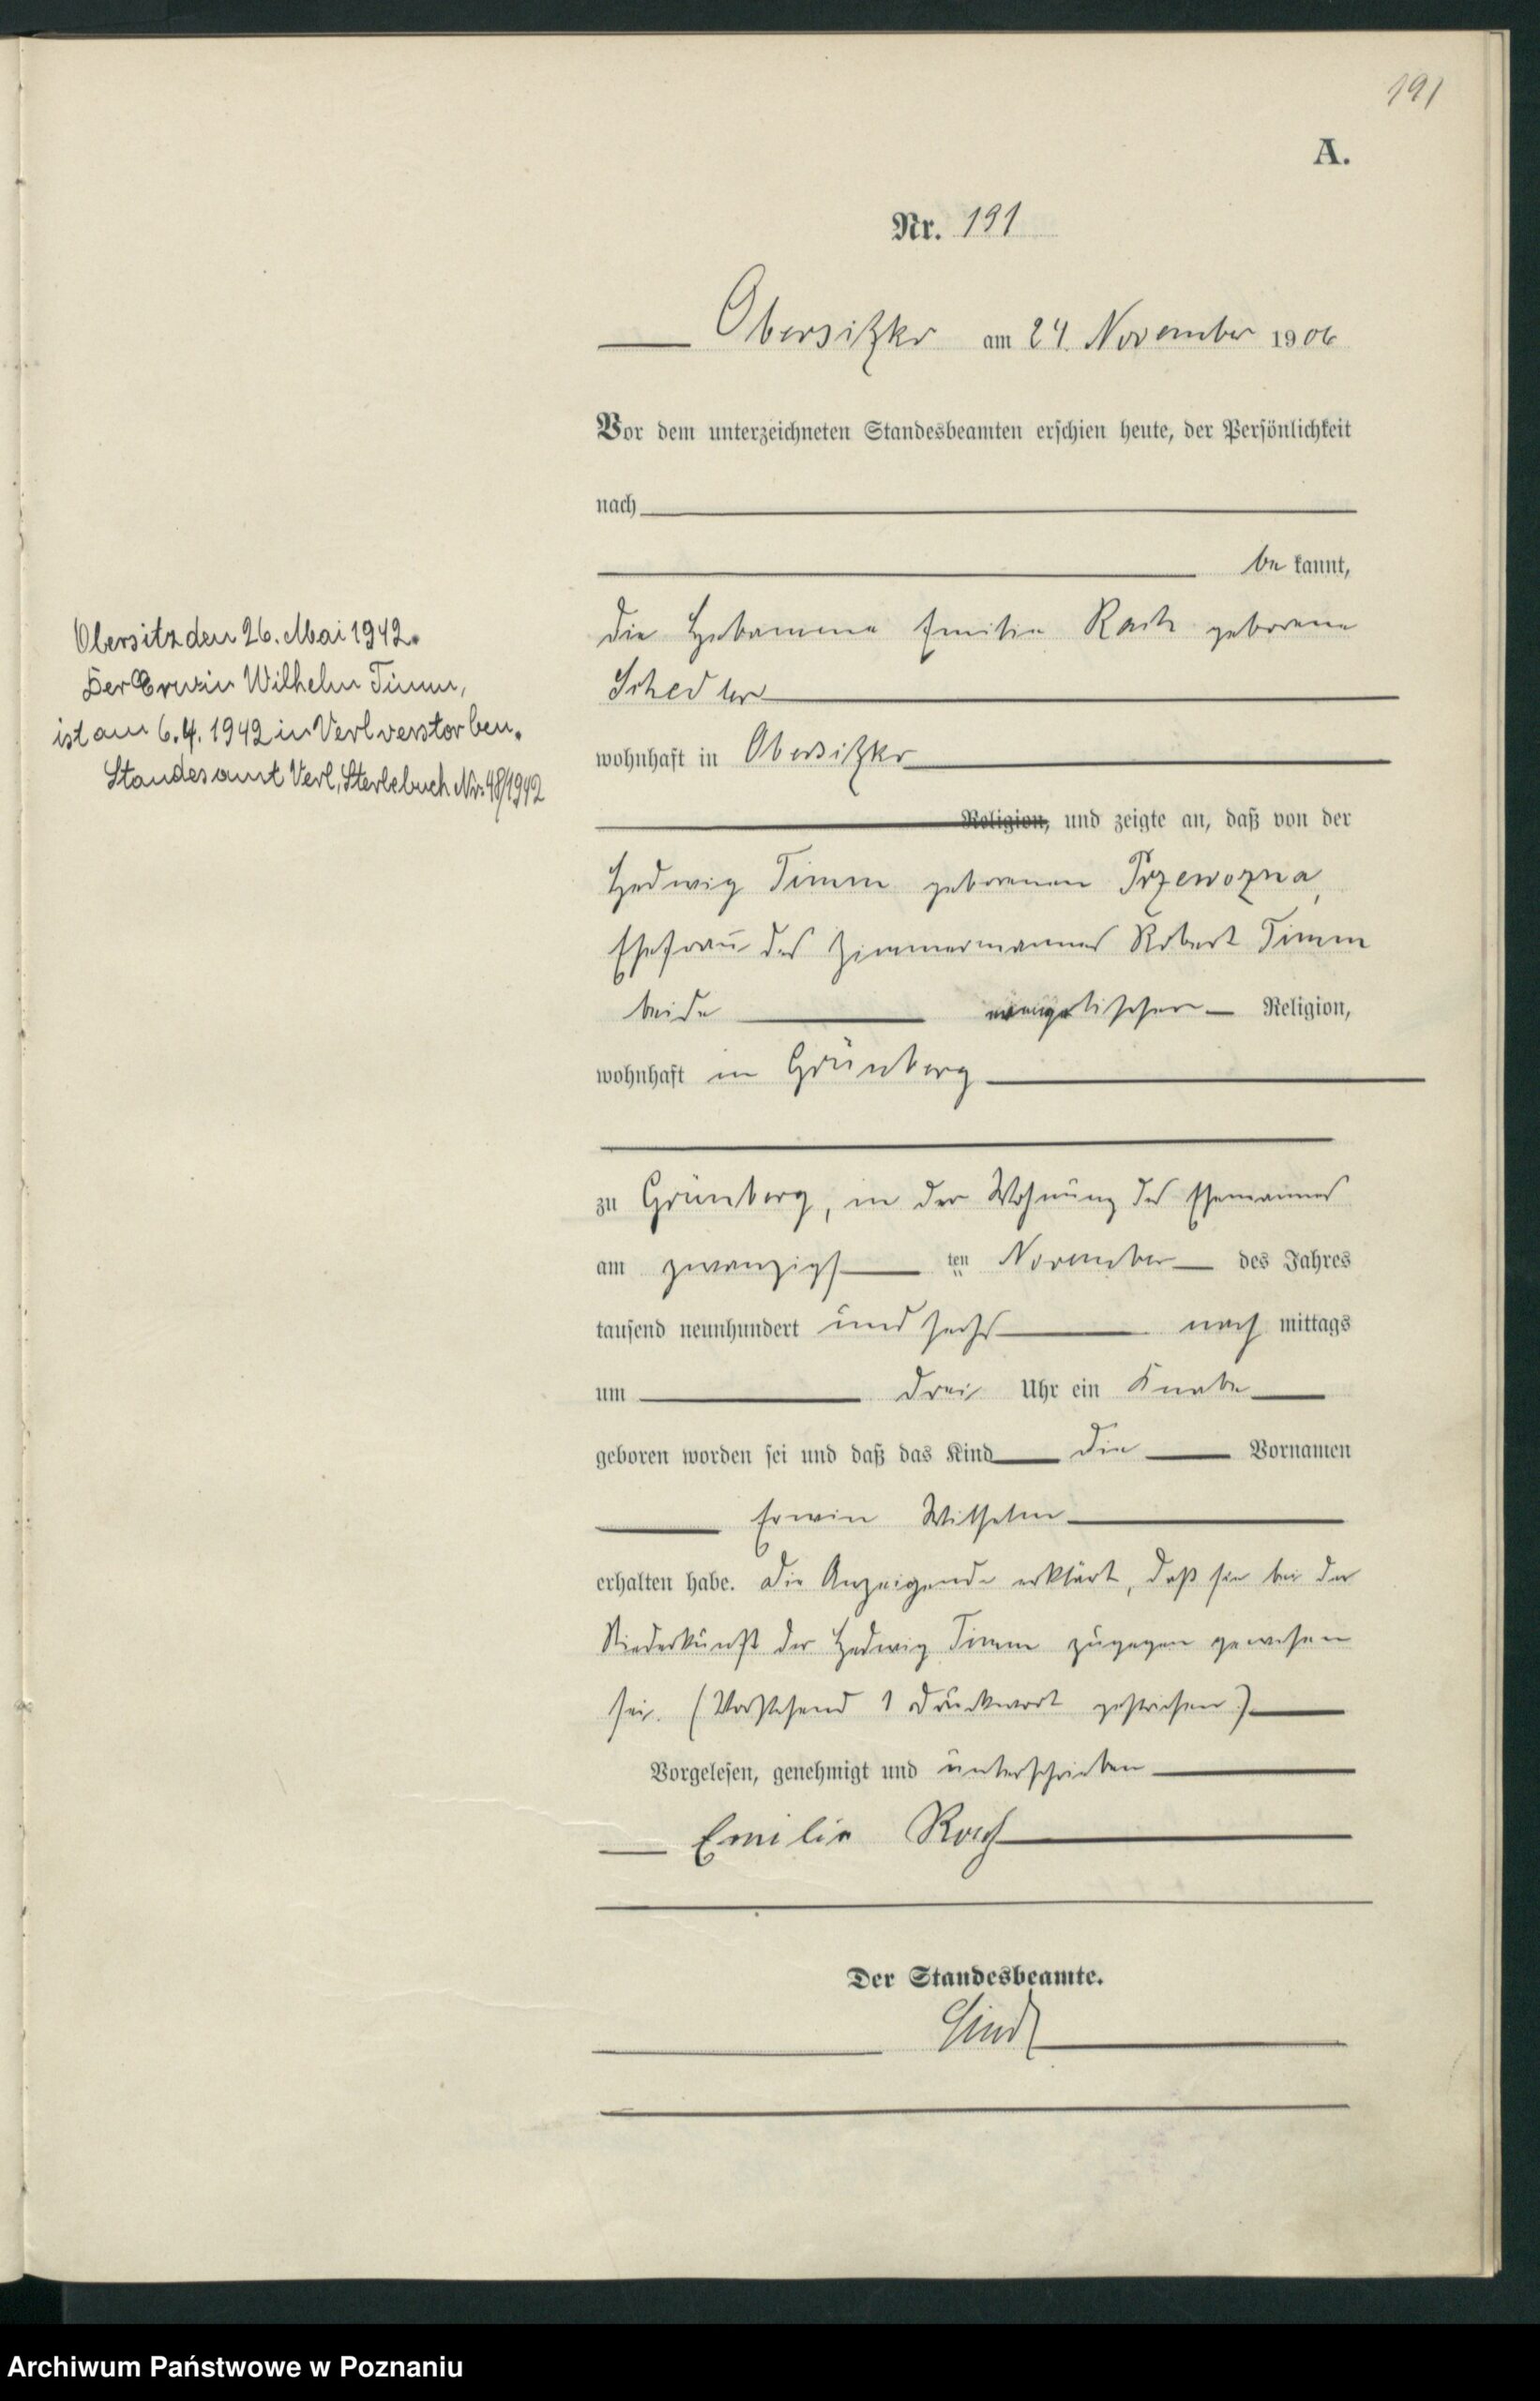 191
A.
Nr. 191
Obersitzko am 24. November 1906
Vor dem unterzeichneten Standesbeamten erschien heute, der Persönlichkeit
nach
be kannt,
die Hebamme Emilie Rach geborene
Schedler
wohnhaft in Obersitzko
Religion, und zeigte an, daß von der
Hedwig Timm geborenen Przewozna,
Ehefrau des Zimmermannes Robert Timm
beide evangelischer Religion,
wohnhaft in Grünberg
zu Grünberg, in der Wohnung des Ehemannes
am zwanzigsten November des Jahres
tausend neunhundert und sechs nach mittags
um drei Uhr ein Knabe
geboren worden sei und daß das Kind die Vornamen
Erwin Wilhelm
erhalten habe. Die Anzeigende erklärt, daß sie bei der
Niederkunft der Hedwig Timm zugegen gewesen
sei. (Vorstehend 1 Druckwort gestrichen)
Vorgelesen, genehmigt und unterschrieben
Emilie Rach
Der Standesbeamte.
Obersitz den 26. Mai 1942.
Der Erwin Wilhelm Timm,
ist am 6.4.1942 in Verl verstorben.
Standesamt Verl, Sterbebuch Nr. 48/1942
Archiwum Państwowe w Poznaniu